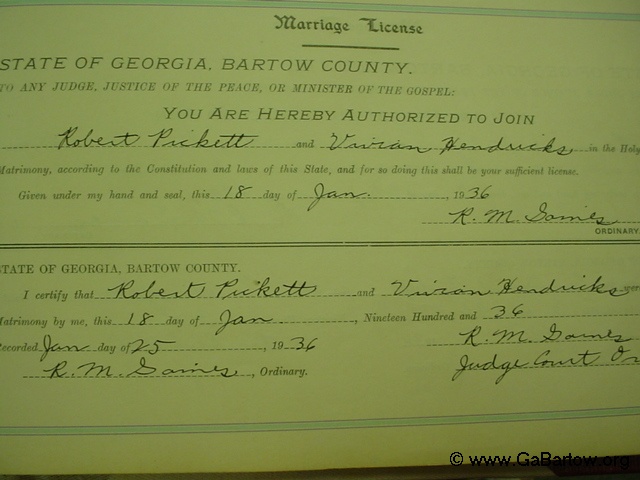 Marriage License
STATE OF GEORGIA, BARTOW COUNTY.
TO ANY JUDGE, JUSTICE OF THE PEACE, OR MINISTER OF THE GOSPEL:
YOU ARE HEREBY AUTHORIZED TO JOIN
Robert Pickett and Vivian Hendricks in the Holy
Matrimony, according to the Constitution and laws of this State, and for so doing this shall be your sufficient license.
Given under my hand and seal, this 18 day of Jan. , 1936
R. M. Gaines
ORDINARY.
STATE OF GEORGIA, BARTOW COUNTY.
I certify that Robert Pickett and Vivian Hendricks were
Matrimony by me, this 18 day of Jan , Nineteen Hundred and 36
Recorded Jan day of 25 , 1936 R. M. Gaines
R. M. Gaines , Ordinary. Judge Court Or
© www.GaBartow.org